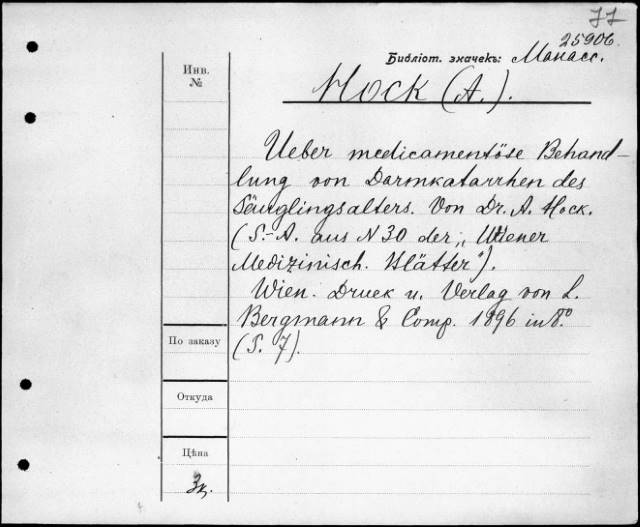 25906
Библіот. значекъ: Манасс.
Инв.
№
Hock (A.).
Ueber medicamentöse Behand-
lung von Darmkatarrhen des
Säuglingsalters. Von Dr. A. Hock.
(S.-A. aus N 30 der „Wiener
Medizinisch. Blätter").
Wien. Druck u. Verlag von L.
Bergmann & Comp. 1896 in 8.º
(S. 7).
По заказу
Откуда
Цѣна